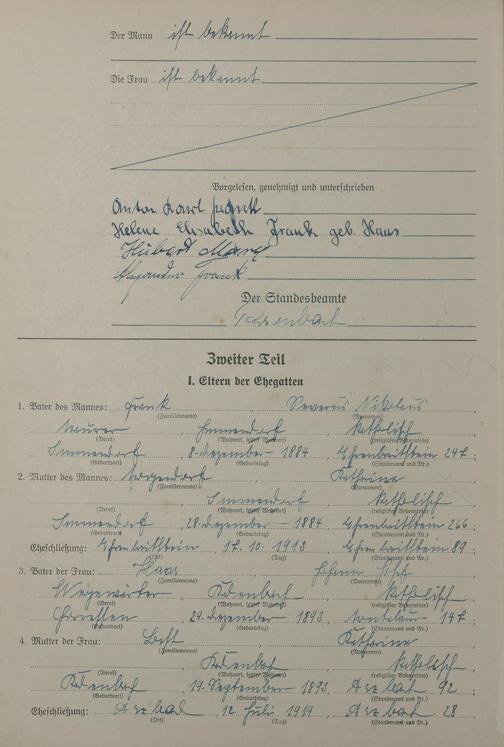 Der Mann ist bekannt
Die Frau ist bekannt
Vorgelesen, genehmigt und unterschrieben
Anton Karl Frank
Helene Elisabeth Frank geb. Haas
Hubert
Alexander Frank
Der Standesbeamte
Zweiter Teil
I. Eltern der Ehegatten
1. Vater des Mannes: Frank Severus Nikolaus
(Familienname) (Vornamen)
Maurer, Immendorf, katholisch
(Beruf) (Wohnort, letzter Wohnort) (religiöses Bekenntnis)
Immendorf, 8. Dezember 1884, Ehrenbreitstein 247;
(Geburtsort) (Geburtstag) (Standesamt und Nr.)
2. Mutter des Mannes: Katharina
(Familienname) (Vornamen)
Immendorf, katholisch
(Beruf) (Wohnort, letzter Wohnort) (religiöses Bekenntnis)
Immendorf, 28. Dezember 1884, Ehrenbreitstein 266;
(Geburtsort) (Geburtstag) (Standesamt und Nr.)
Eheschließung: Ehrenbreitstein 17. 10. 1913 Ehrenbreitstein 89;
(Ort) (Tag) (Standesamt und Nr.)
3. Vater der Frau: Haas Johann Josef
(Familienname) (Vornamen)
Wegewärter, Kadenbach, katholisch
(Beruf) (Wohnort, letzter Wohnort) (religiöses Bekenntnis)
29. Dezember 1893, 147;
(Geburtsort) (Geburtstag) (Standesamt und Nr.)
4. Mutter der Frau: Katharina
(Familienname) (Vornamen)
Kadenbach, katholisch
(Beruf) (Wohnort, letzter Wohnort) (religiöses Bekenntnis)
Kadenbach, 19. September 1893, Arzbach 92;
(Geburtsort) (Geburtstag) (Standesamt und Nr.)
Eheschließung: Arzbach, 12. Juli 1919, Arzbach 28
(Ort) (Tag) (Standesamt und Nr.)